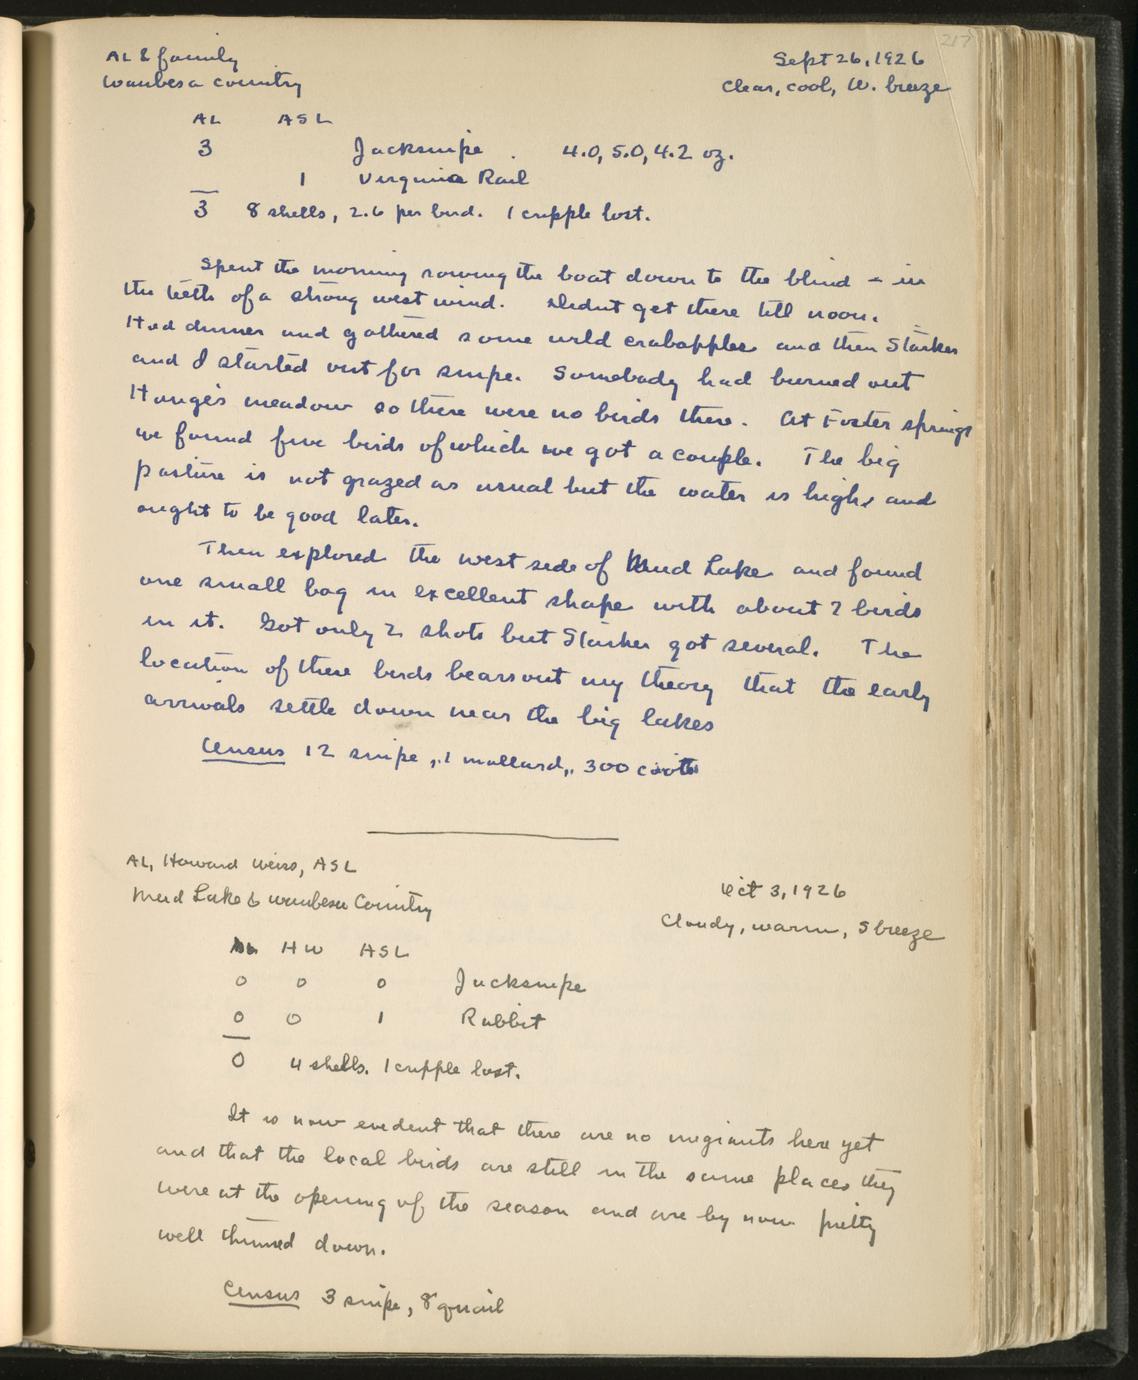 217
AL & family
Waubesa Country
Sept 26, 1926
Clear, cool, W. breeze
AL ASL
3 Jacksnipe . 4.0, 5.0, 4.2 oz.
1 Virginia Rail
3 8 shells, 2.6 per bird. 1 cripple lost.
Spent the morning rowing the boat down to the blind - in
the teeth of a strong west wind. Didnt get there till noon.
Had dinner and gathered some wild crabapples and then Starker
and I started out for snipe. Somebody had burned out
Hauge's meadow so there were no birds there. At Foster springs
we found five birds of which we got a couple. The big
pasture is not grazed as usual but the water is high, and
ought to be good later.
Then explored the west side of Mud Lake and found
one small bog in excellent shape with about 7 birds
in it. Got only 2 shots but Starker got several. The
location of these birds bears out my theory that the early
arrivals settle down near the big lakes
Census 12 snipe, 1 mallard, 300 coots
AL, Howard Weiss, ASL
Mud Lake & Waubesa Country
Oct 3, 1926
Cloudy, warm, S breeze
AL HW ASL
0 0 0 Jacksnipe
0 0 1 Rabbit
0 4 shells. 1 cripple lost.
It is now evident that there are no migrants here yet
and that the local birds are still in the same places they
were at the opening of the season and are by now pretty
well thinned down.
Census 3 snipe, 8 quail